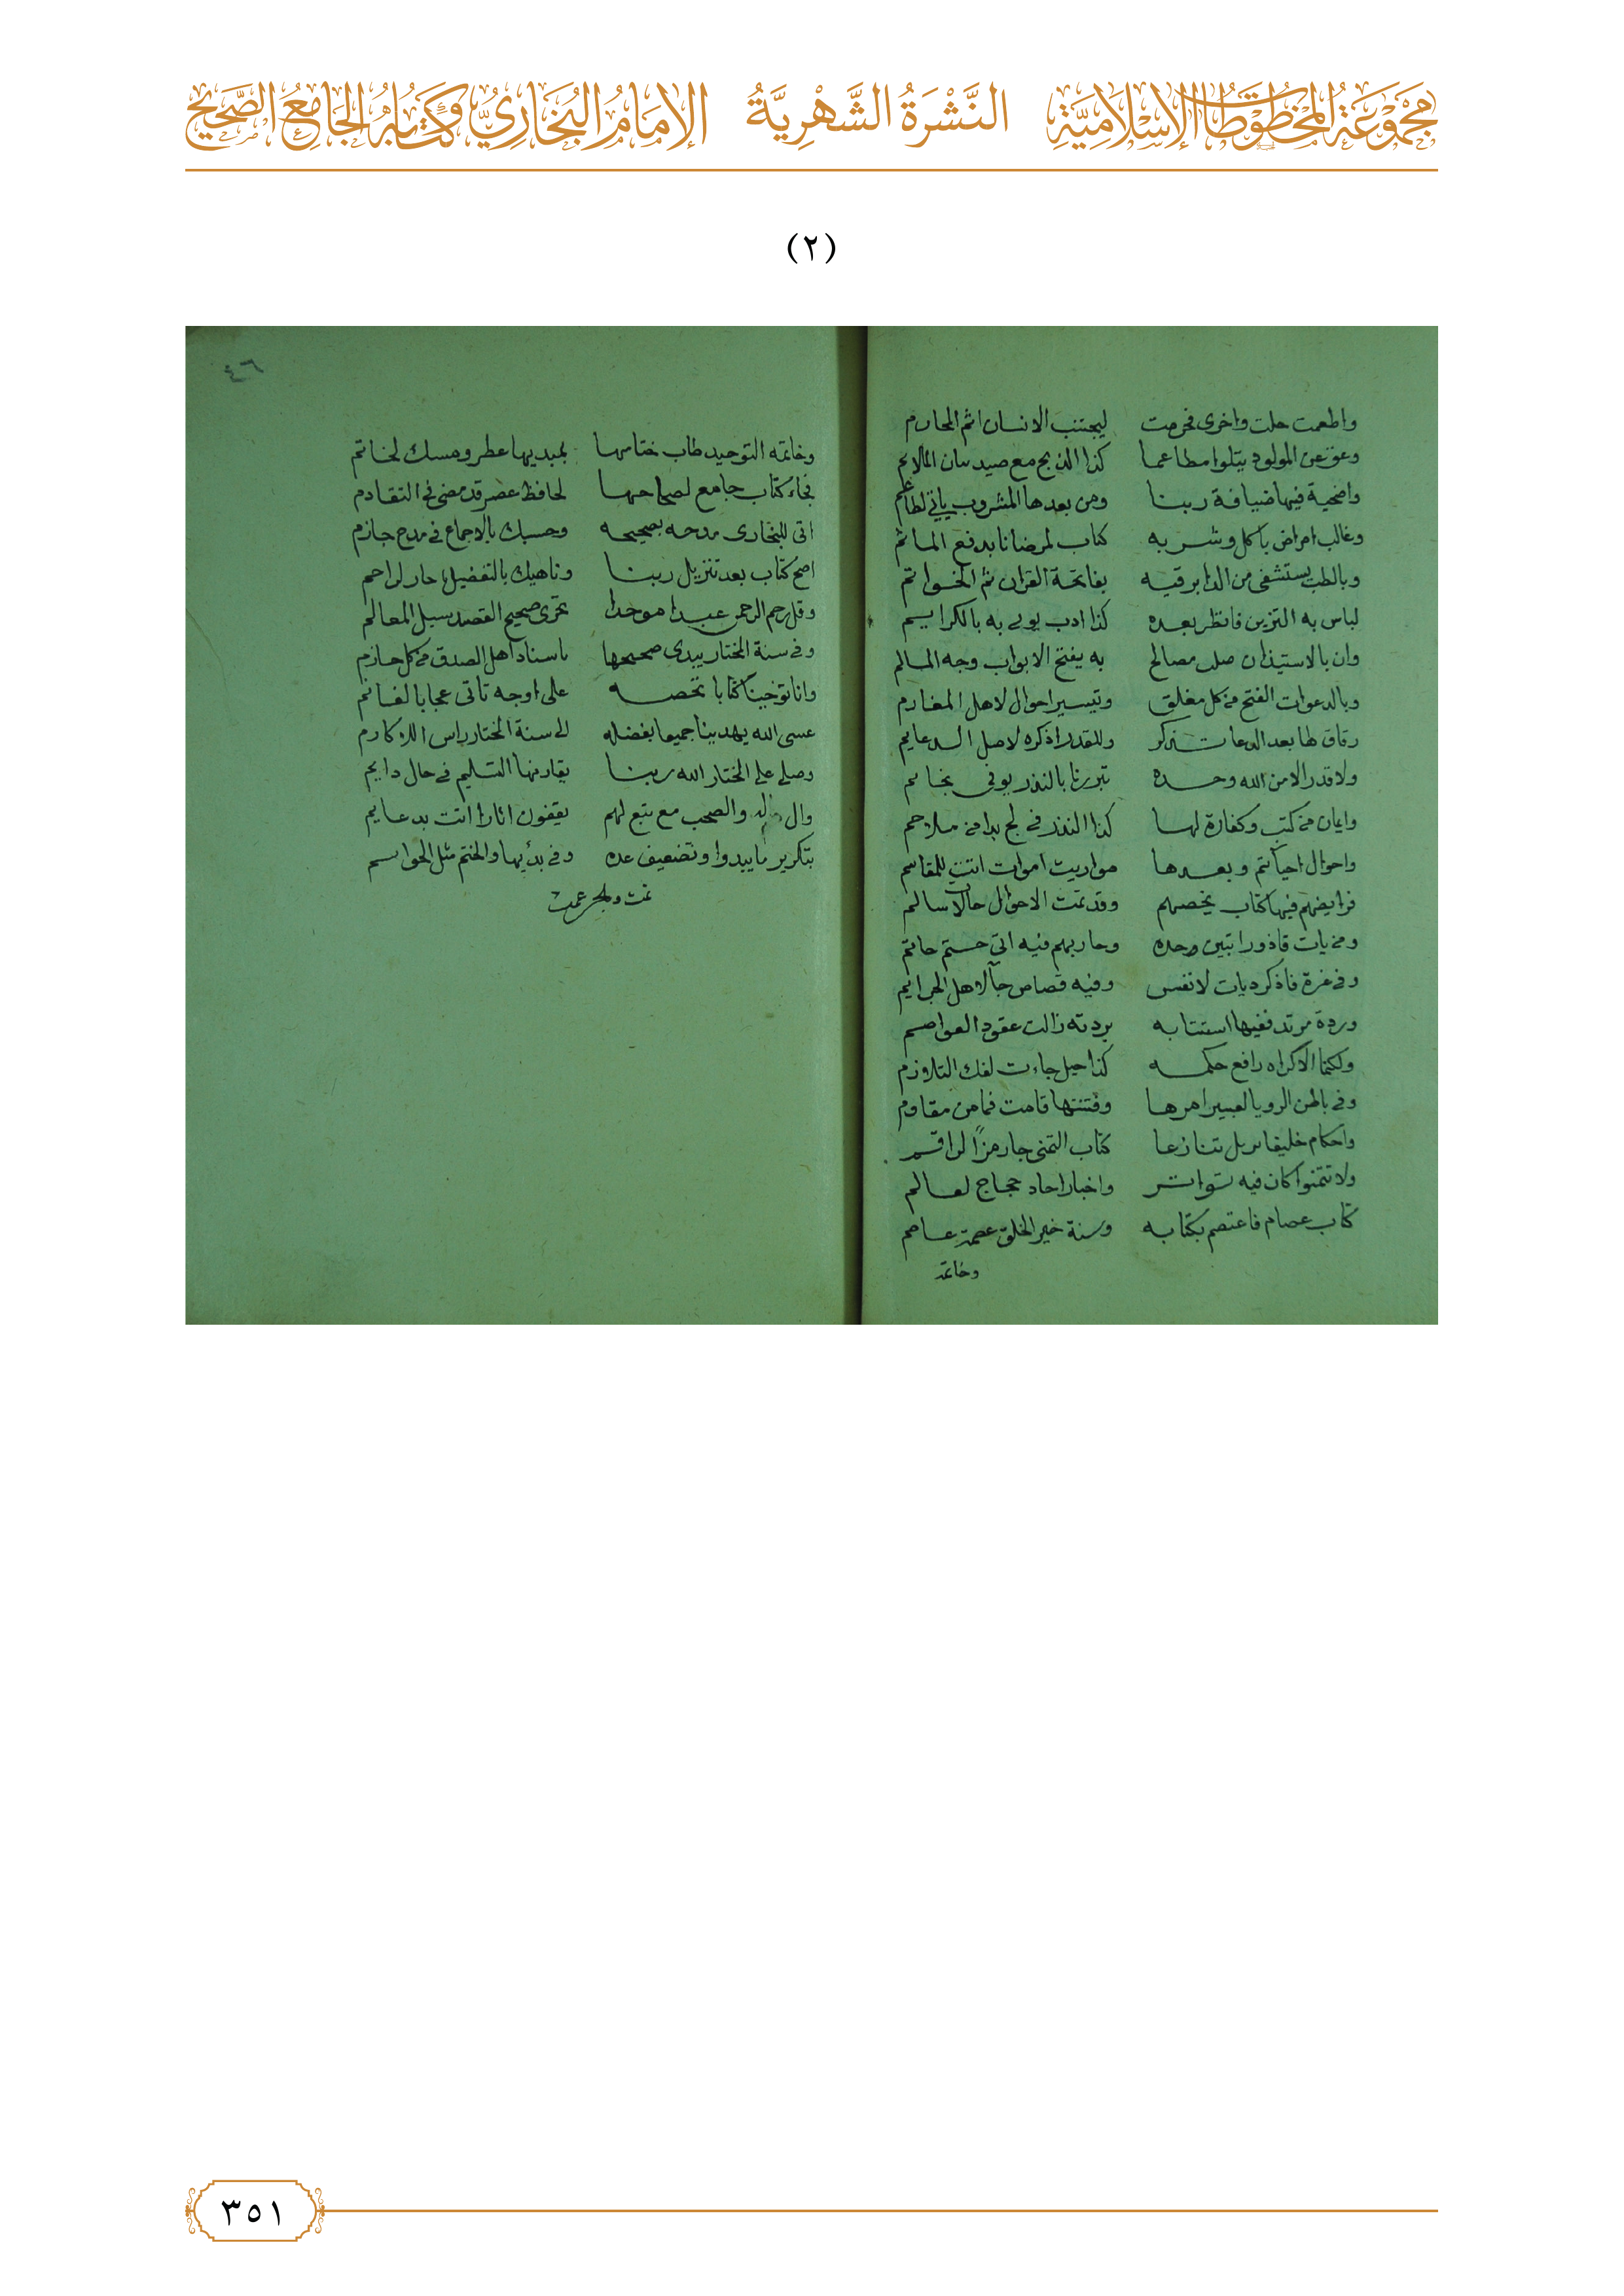 مَجْمُوعَةُ المَخْطُوطَاتِ الإِسْلَامِيَّةِ النَّشْرَةُ الشَّهْرِيَّةُ الإِمَامُ البُخَارِيُّ وَكِتَابُهُ الجَامِعُ الصَّحِيحُ
(٢)
واطعمت حلت واخرى فحرمت ليجتنب الانسان اثم المحارم
وعق عن المولود يتلوا مطاعما كذا الذبح مع صيد
واضحية فيها ضيافة ربنا ومن بعدها المشروب ياتي لطاعم
وغالب امراض باكل وشربه كتاب لمرضانا بدفع الماثم
وبالطب يستشفى من الدا برقيه بفاتحة القران ثم الخواتم
لباس به التزين فانظر بعده كذا ادب به بالكرايم
وان بالاستيذان مصالح به يفتح الابواب وجه المسالم
وبالدعوات الفتح من كل مغلق وتيسير احوال لاهل المغارم
رقاق لها بعد الدعا وللقدر اذكره لاصل الدعايم
ولا قدر الا من الله وحده تبررنا بالنذر يوفى
وايمان من كتب وكفارة لها كذا النذر في لج بدا من ملاحم
واحوال احيا تتم وبعدها مواريث اموات اتت للمقاسم
فرايضهم فيها كتاب يخصهم وقد تمت الاحوال حالات سالم
ومن يات قاذورا تبين وحده وحاربهم فيه اتى حتم حاتم
وفي غرة فاذكر ديات لانفس وفيه قصاص جا لاهل الجرايم
وردة مرتد ففيها استتابه بردته زالت عقود العواصم
ولكنما الاكراه رافع حكمه كذا حيل جاءت لفك التلازم
وفي باطن الرويا لعبير امرها وفتنتها قامت فما من مقاوم
واحكام خليفا يزيل تنازعا كتاب التمنى جا رمزا لراقم
ولا تتمنوا كان فيه تواتر واخبار احاد حجاج لعالم
كتاب عصام فاعتصم بكتابه وسنة خير الخلق عصمة عاصم
وخاتمة
٤٦
وخاتمه التوحيد طاب ختامها بمبديها عطر ومسك لخاتم
فجاء كتاب جامع لصحاحها لحافظ عصر قد مضى في التقادم
اتى للبخارى مدحه بصحيحه وحسبك بالاجماع في مدح جازم
اصح كتاب بعد تنزيل ربنا وناهيك بالتفضيل جار لراحم
وقل رحم الرحمن عبدا موحدا تحرى صحيح القصد سبل المعالم
وفي سنة المختار يبدى صحيحها باسناد اهل الصدق من كل حازم
وانا توخينا كتابا نخصه على اوجه تاتى عجابا لغانم
عسى الله يهدينا جميعا بفضله الى سنة المختار راس الاكارم
وصلى على المختار الله ربنا يقارنها التسليم في حال دايم
وال له والصحب مع تبع لهم يقفون اثارا اتت بدعايم
بتكرير ما يبدوا وتضعيف عده وفي بدايها والختم مثل الخواتم
تمت
٣٥١